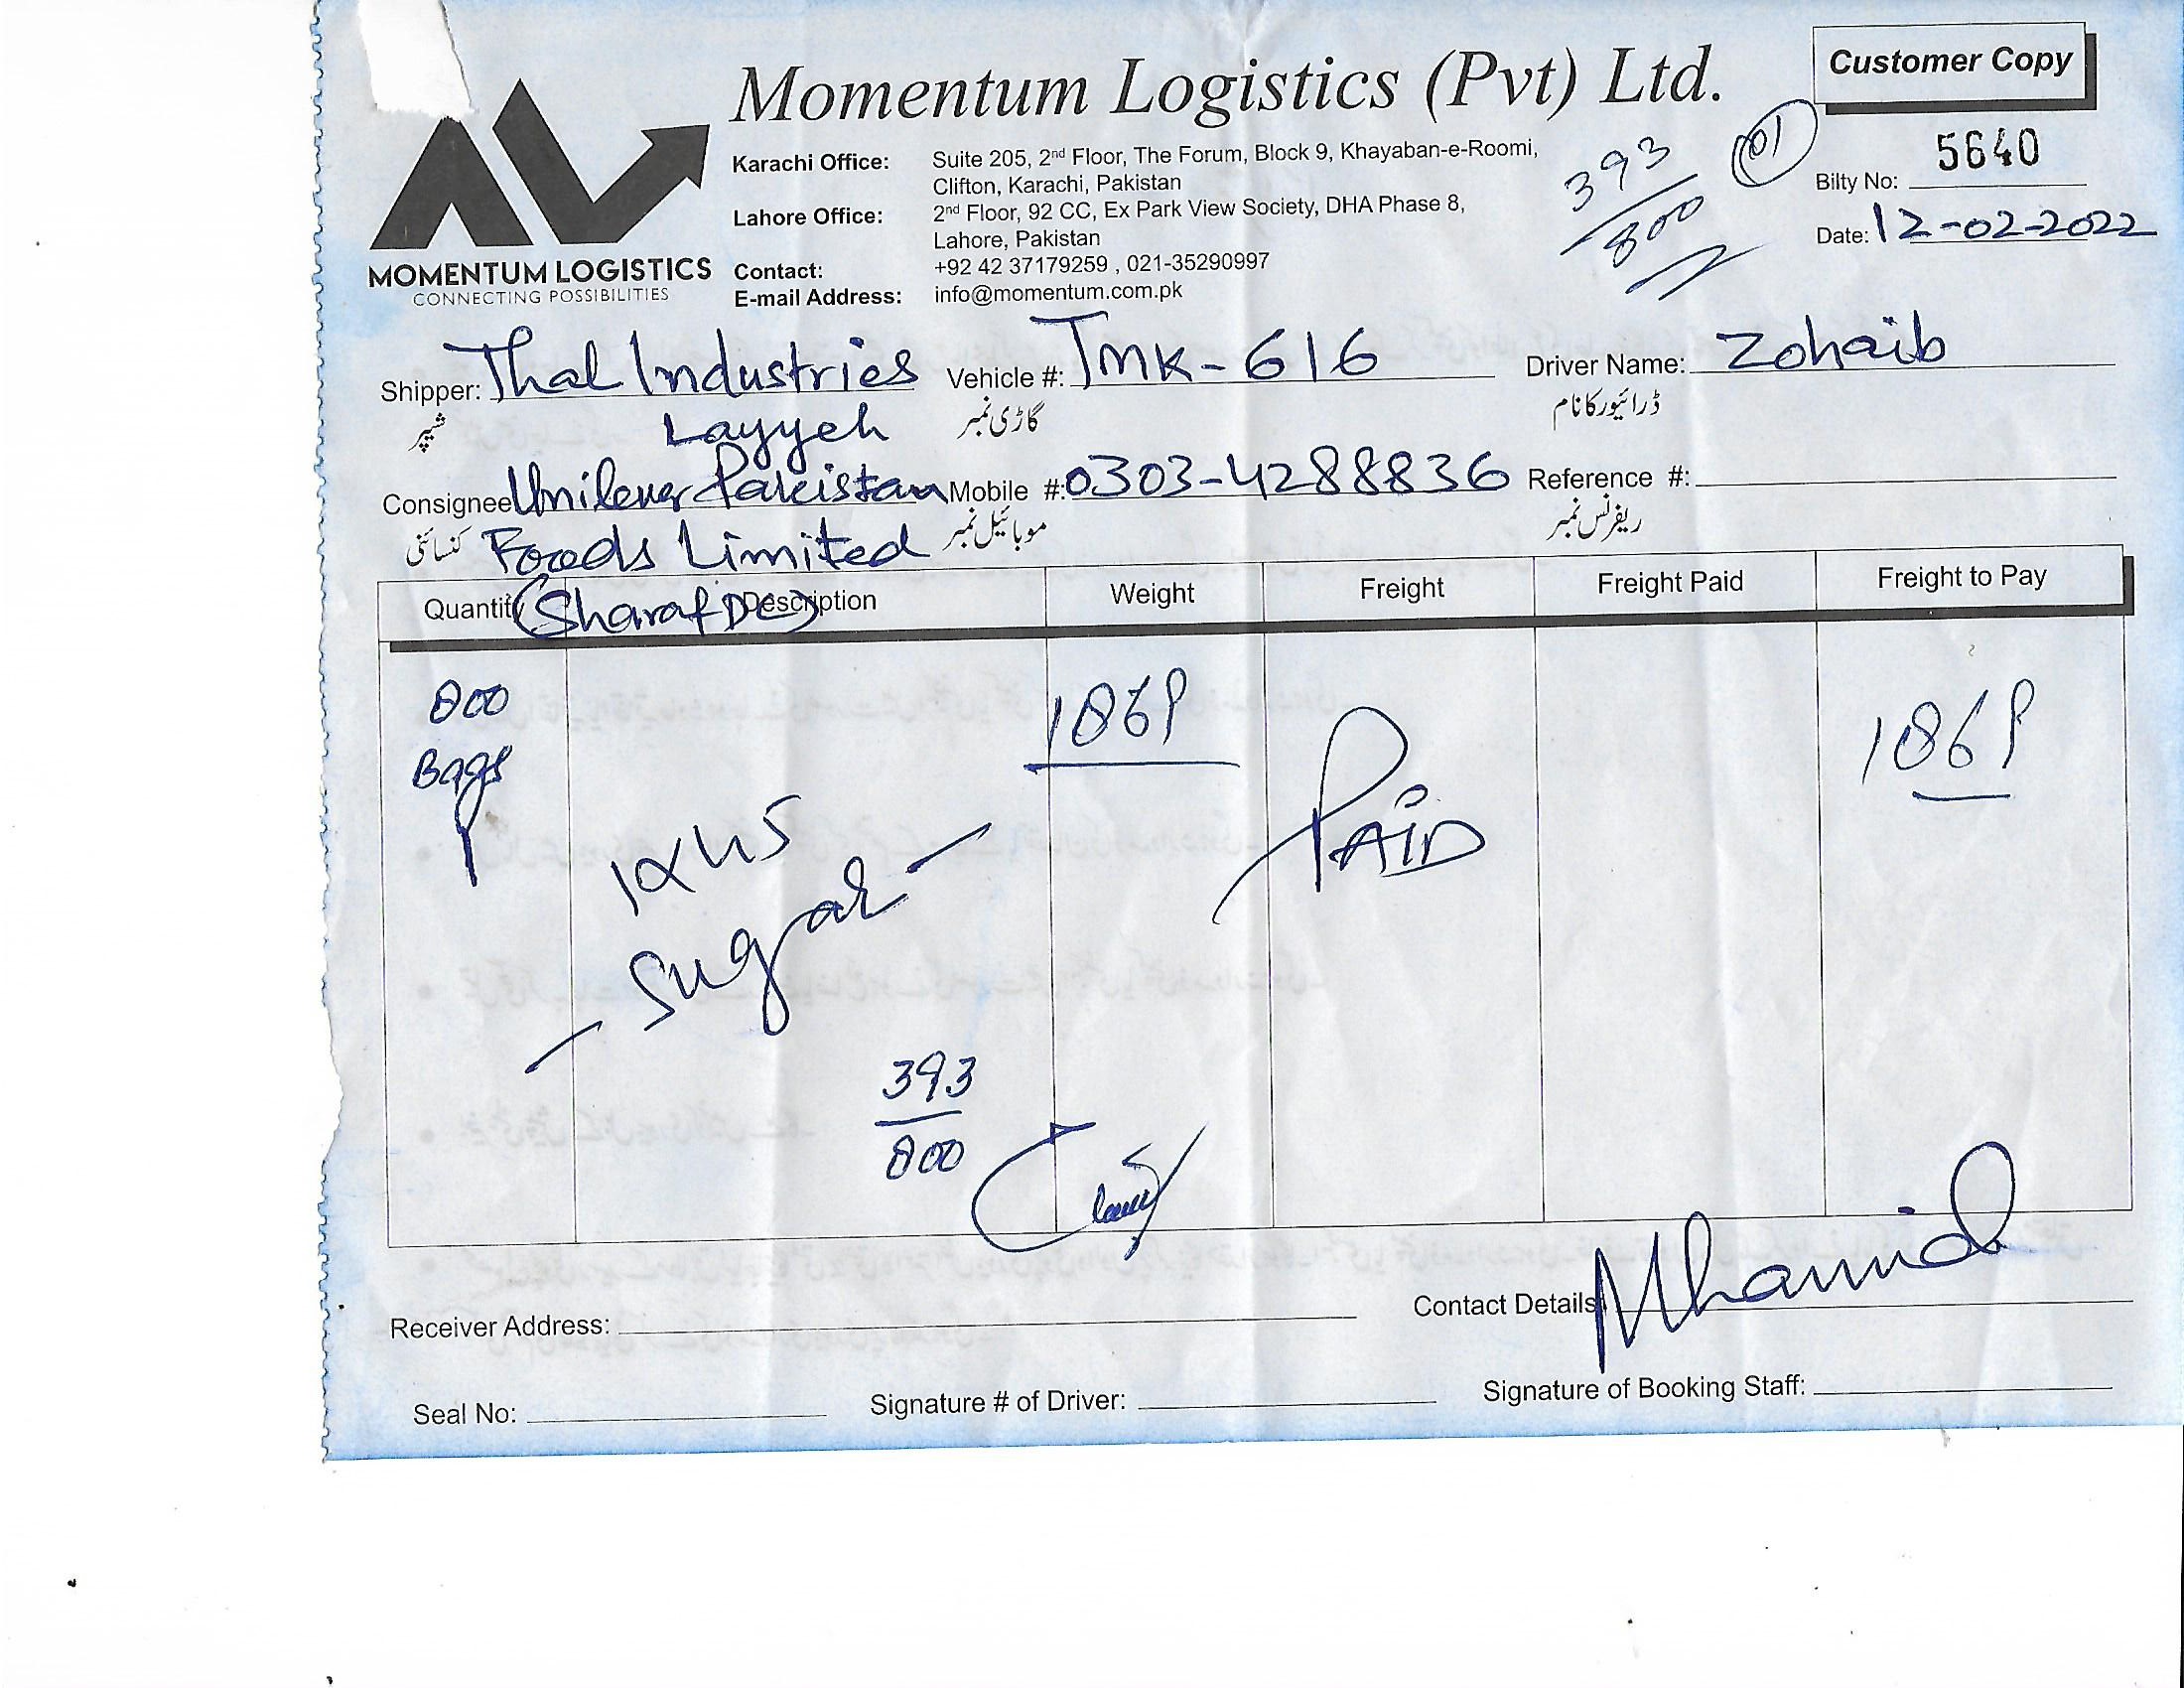 Momentum Logistics (Pvt) Ltd.
Customer Copy
MOMENTUM LOGISTICS
CONNECTING POSSIBILITIES
Karachi Office: Suite 205, 2nd Floor, The Forum, Block 9, Khayaban-e-Roomi,
Clifton, Karachi, Pakistan
Lahore Office: 2nd Floor, 92 CC, Ex Park View Society, DHA Phase 8,
Lahore, Pakistan
Contact: +92 42 37179259 , 021-35290997
E-mail Address: info@momentum.com.pk
393
800
01
Bilty No: 5640
Date: 12-02-2022
Shipper: Thal Industries Vehicle #: TMK-616 Driver Name: Zohaib
شیپر Layyeh گاڑی نمبر ڈرائیور کا نام
Consignee Unilever Pakistan Mobile #: 0303-4288836 Reference #:
کنسائنی Foods Limited موبائیل نمبر ریفرنس نمبر
(Sharaf DC)
Quantity Description Weight Freight Freight Paid Freight to Pay
800 1869 1869
Bags
PAID
1x45
- Sugar -
393
800
Receiver Address: Contact Details
Seal No: Signature # of Driver: Signature of Booking Staff: